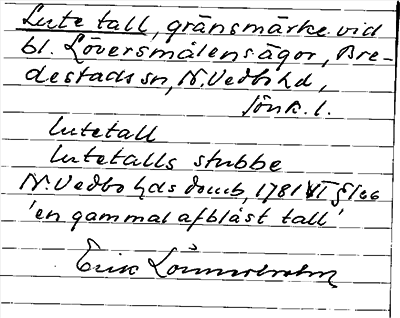 Lutetall, gränsmärke vid
bl. Löversmålens ägor, Bre-
destads sn, N. Vedbo hd,
Jönk. l.
lutetall
lutetalls stubbe
N. Vedbo hds domb, 1781 VI § 166
'en gammal afblåst tall'
Erik Lönnerholm